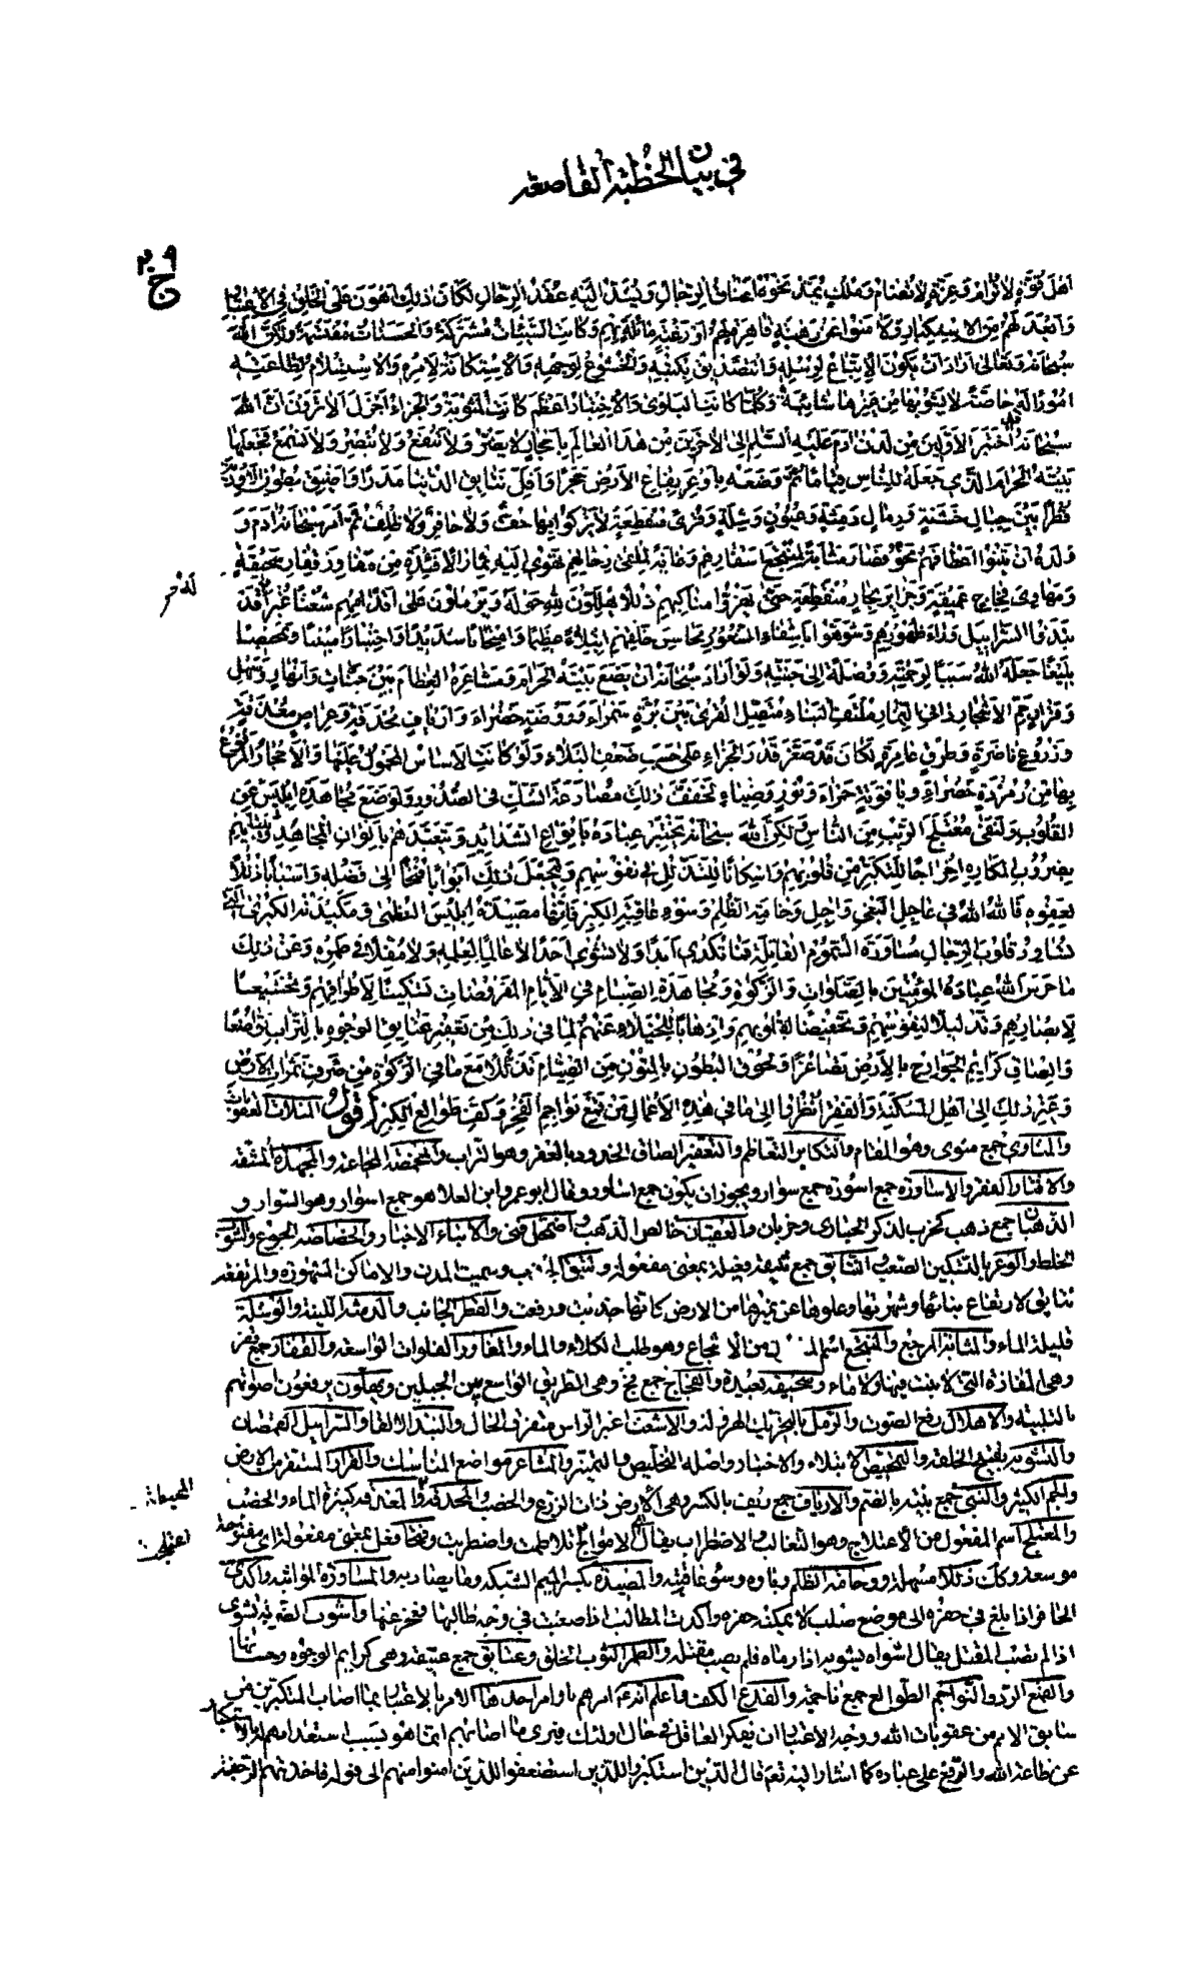 في بيان الخطبة القاصعة
ج ٢٠٩
اهل قوة لا ترام وعزة لا تضام وملك يمتد نحوه اعناق الرجال وتشد اليه عقد الرحال لكان ذلك اهون على الخلق في الاعتبار
وابعد لهم من الاستكبار ولآمنوا عن رهبة قاهرة لهم او رغبة مائلة بهم وكانت السيئات مشتركة والحسنات مقتسمة ولكن الله
سبحانه وتعالى اراد ان يكون الاتباع لرسله والتصديق بكتبه والخشوع لوجهه والاستكانة لامره والاستسلام لطاعته
امورا له خاصة لا يشوبها من غيرها شائبة وكلما كانت البلوى والاختبار اعظم كانت المثوبة والجزاء اجزل الا ترون ان الله
سبحانه اختبر الاولين من لدن ادم عليه السلم الى الاخرين من هذا العالم باحجار لا تضر ولا تنفع ولا تبصر ولا تسمع فجعلها
بيته الحرام الذي جعله للناس قياما ثم وضعه باوعر بقاع الارض حجرا واقل نتايق الدنيا مدرا واضيق بطون الاودية
قطرا بين جبال خشنة ورمال دمثة وعيون وشلة وقرى منقطعة لا يزكوا بها خف ولا حافر ولا ظلف ثم امر سبحانه ادم و
ولده ان يثنوا اعطافهم نحوه فصار مثابة لمنتجع اسفارهم وغاية لملقى رحالهم تهوى اليه ثمار الافئدة من مفاوز قفار سحيقة
ومهاوى فجاج عميقة وجزاير بحار منقطعة حتى يهزوا مناكبهم ذللا يهلون لله حوله ويرملون على اقدامهم شعثا غبرا له قد
نبذوا السرابيل وراء ظهورهم وشوهوا باعفاء الشعور محاسن خلقهم ابتلاء عظيما وامتحانا شديدا واختبارا مبينا وتمحيصا
بليغا جعله الله سببا لرحمته ووصلة الى جنته ولو اراد سبحانه ان يضع بيته الحرام ومشاعره العظام بين جنات وانهار وسهل
وقرار جم الاشجار داني الثمار ملتف البناء متصل القرى بين برة سمراء وروضة خضراء وارياف محدقة وعراص مغدقة
وزروع ناضرة وطرق عامرة لكان قد صغر قدر الجزاء على حسب ضعف البلاء ولو كانت الاساس المحمول عليها والاحجار المرفوع
بها من زمردة خضراء وياقوتة حمراء ونور وضياء لخفف ذلك مصارعة الشك في الصدور ولوضع مجاهدة ابليس عن
القلوب ولنفى معتلج الريب من الناس ولكن الله سبحانه يختبر عباده بانواع الشدايد ويتعبدهم بالوان المجاهد ويبتليهم
بضروب المكاره اخراجا للتكبر من قلوبهم واسكانا للتذلل في نفوسهم وليجعل ذلك ابوابا فتحا الى فضله واسبابا ذللا
لعفوه فالله الله في عاجل البغى واجل وخامة الظلم وسوء عاقبة الكبر فانها مصيدة ابليس العظمى ومكيدته الكبرى التي
تساور قلوب الرجال مساورة السموم القاتلة فما تكدى ابدا ولا تشوى احدا لا عالما لعلمه ولا مقلا في طمره وعن ذلك
ما حرس الله عباده المؤمنين بالصلوات والزكوة ومجاهدة الصيام في الايام المفروضات تسكينا لاطرافهم وتخشيعا
لابصارهم وتذليلا لنفوسهم وتخفيضا لقلوبهم واذهابا للخيلاء عنهم لما في ذلك من تعفير عتايق الوجوه بالتراب تواضعا
والصاق كرايم الجوارح بالارض تصاغرا ولحوق البطون بالمتون من الصيام تذللا مع ما في الزكوة من صرف ثمرات الارض
وغير ذلك الى اهل المسكنة والفقر انظروا الى ما في هذه الافعال من قمع نواجم الفخر وكف طوالع الكبر اقول المثلات العقوبات
والمثاوى جمع مثوى وهو المقام والتكابر التعاظم والتعفير الصاق الخدود بالعفر وهو التراب والمخمصة المجاعة والمجهدة المشقة
والاقتار الفقر والاساورة جمع اسورة جمع سوار ويجوز ان يكون جمع اساور وقال ابو عمرو ابن العلا هو جمع اسوار وهو السوار و
الذهبان جمع ذهب كخرب لذكر الحبارى وخربان والعقيان خالص الذهب واضمحل فنى والانباء الاخبار والخصاصة الجوع والشوب
الخلط والوعر بالتسكين الصعب النتايق جمع نتيقة فعيلة بمعنى مفعولة وسميت المدن والاماكن المشهورة والمرتفعة
نتايق لارتفاع بنائها وشهرتها وعلوها عن غيرها من الارض كانها جذبت ورفعت والقطر الجانب والدمثة اللينة والوشلة
قليلة الماء والمثابة المرجع والمنتجع اسم من الانتجاع وهو طلب الكلاء والماء والمفاوز الفلوات الواسعة والقفار جمع قفر
وهي المفازة التي لا نبت فيها ولا ماء وسحيقة بعيدة والفجاج جمع فج وهي الطريق الواسع بين الجبلين ويهلون يرفعون اصواتهم
بالتلبية والاهلال رفع الصوت والرمل بالتحريك الهرولة والاشعث اغبر الراس متفرق الحال والنبذ الالقاء والسرابيل القمصان
والتشويه تقبيح الخلقة والتمحيص الابتلاء والاختبار واصله التخليص والتميز والمشاعر مواضع المناسك والقرار المستقر من الارض
والجم الكثير والبنى جمع بنية بالضم والارياف جمع ريف بالكسر وهي الارض ذات الزرع والخصب والمحدقة المغدقة كثيرة الماء والخصب
والمعتلج اسم المفعول من الاعتلاج وهو التغالب والاضطراب يقال الامواج تلاطمت واضطربت وفتحا فعل بمعنى مفعول اى مفتوحة
موسعة وكك ذللا مسهلة ووخامة الظلم وباوه وسوء عاقبته والمصيدة بكسر الميم الشبكة وما يصاد به والمساورة المواثبة واكدى
الحافر اذا بلغ في حفره الى موضع صلب لا يمكنه حفره واكدت المطالب اذا صعبت في وجه طالبها فعجز عنها واشوت الضربة تشوى
اذا لم تصب المقتل يقال اشواه يشويه اذا رماه فلم يصب مقتله والطمر الثوب الخلق وعتايق جمع عتيقة وهي كرايم الوجوه وحسانها
والقمع الرد والنواجم الطوالع جمع ناجمة والقدع الكف واعلم انه ع امرهم باوامر احدها الامر بالاعتبار بما اصاب المتكبرين في
سابق الامم من عقوبات الله ووجه الاعتبار ان يفكر العاقل في حال اولئك فيرى ما اصابهم انما هو بسبب استعدادهم بالاستكبار
عن طاعة الله والترفع على عباده كما اشار اليه تعم قال الذين استكبروا للذين استضعفوا للذين امنوا منهم الى قوله فاخذتهم الرجفة